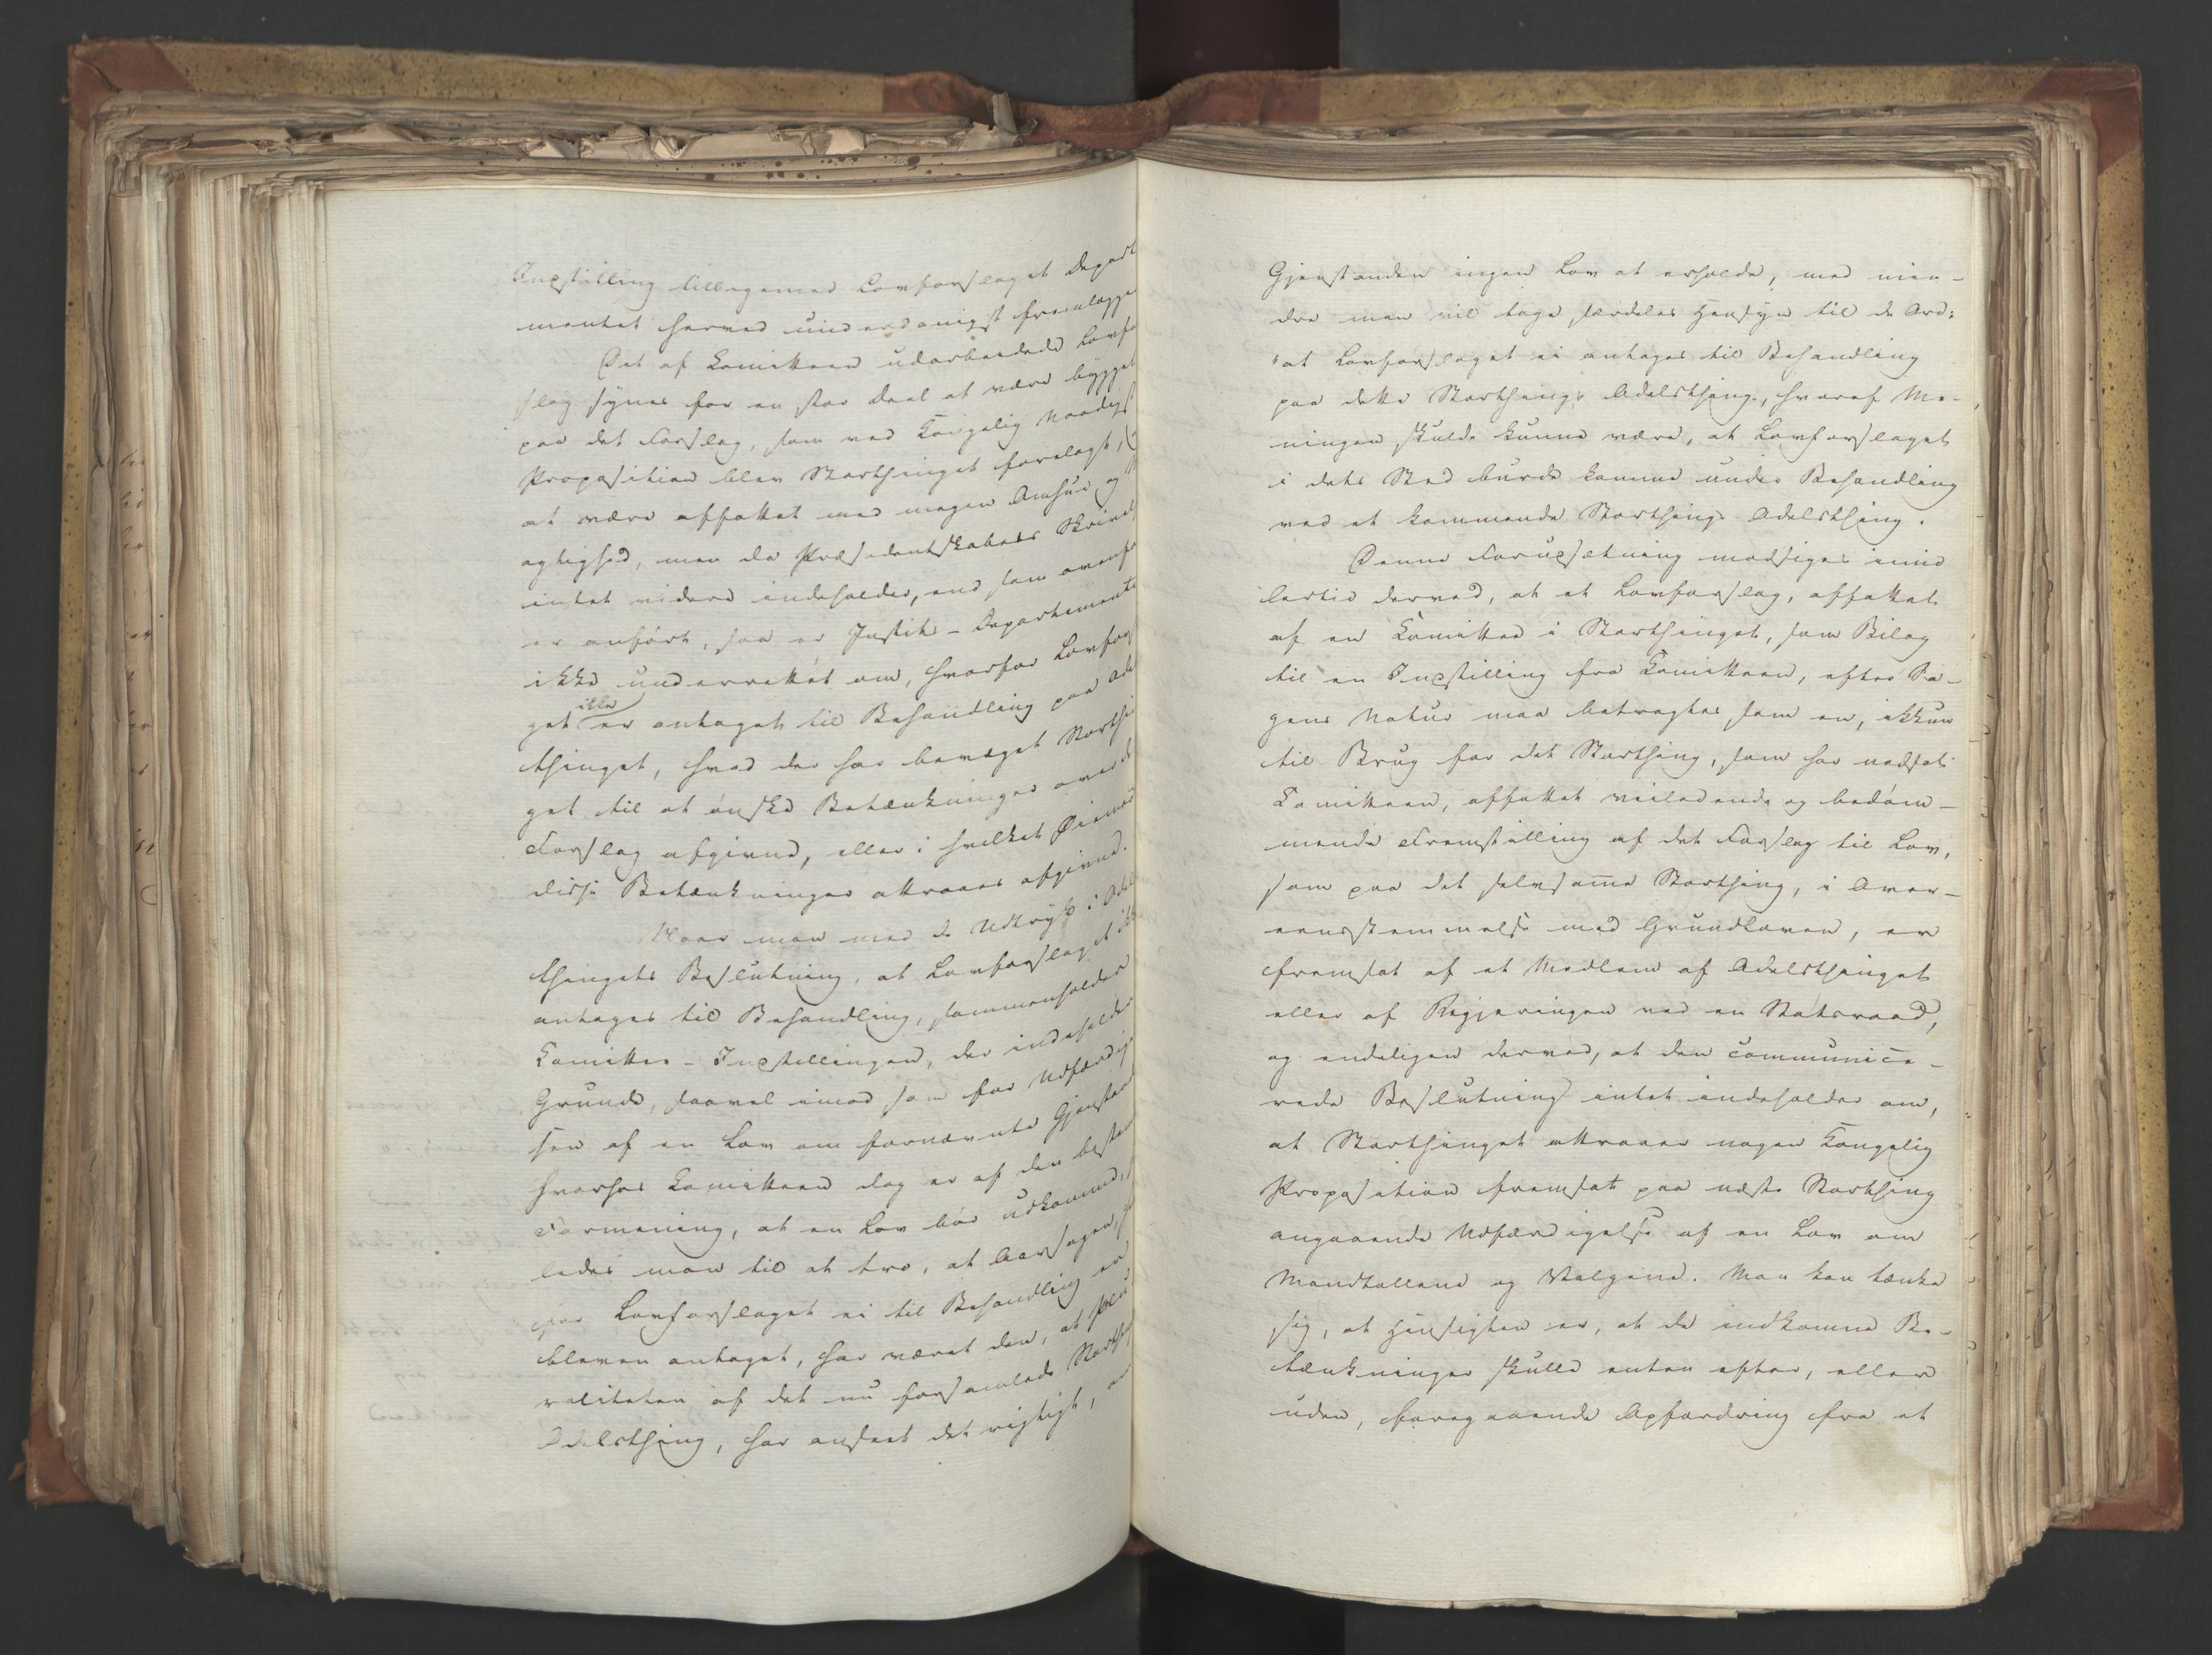 Indstilling tillegemed Lovforslaget Depart
mentet herved underdanigst fremlægge
Det af Komitteen udarbeidede Lovfo
slag synes for en stor Deel at være bygget
paa det Forslag, som ved Kongelig Naadigst
Proposition blev Storthinget forelagt,
at være affattet med megen Omhue og
agtighed, men da Præsidentskabets Skrivel
intet videre indeholder, end som ovenfo
er anført, saa er Justits-Departemente
ikke underrettet om, hvorfor Lovfor
ikke
get er antaget til Behandling paa Ode
thinget, hvad der har bevæget Storthi
get til at ønske Betænkninger over de
Forslag afgivne, eller i hvilket Øiemed
disse Betænkninger attraaes afgivne.
Naar man med de Udtryk i Odel
thingets Beslutning, at Lovforslaget ikk
antages til Behandling, sammenholder
Komittee-Indstillingen, der indeholder
Grunde, saavel imod som for Udfærdige
sen af en Lov om fornævnte Gjenstan
hvorhos Komitteen dog er af den besten
Formening, at en Lov bør udkomme,
ledes man til at troe, at Aarsagen,
for Lovforslaget ei til Behandling er
bleven antaget, har været den, at plu
raliteten af det nu forsamlede Storthi
Odelsthing, har anseet det rigtigt,
Gjenstanden ingen Lov at erholde, med min-
dre man vil tage særdeles Hensyn til de Ord:
"at Lovforslaget ei antages til Behandling
paa dette Storthings Odelsthing, hvoraf Me-
ningen skulde kunne være, at Lovforslaget
i dets Sted burde komme under Behandling
ved et kommende Storthings Odelsthing.
Denne Forudsætning modsiges imid
lertid derved, at et Lovforslag, affattet
af en Komittee i Storthinget, som Bilag
til en Indstilling fra Komitteen, efter Sa-
gens Natur maa betragtes som en, ikkun
til Brug for det Storthing, som har nedsat
Komitteen, affattet veiledende og bedøm-
mende Fremstilling af det Forslag til Lov,
som paa det selvsamme Storthing, i Over-
eensstemmelse med Grundloven, er
fremsat af et Medlem af Odelsthinget
eller af Regjeringen ved en Statsraad,
og endeligen derved, at den communice-
rede Beslutning intet indeholder om,
at Storthinget attraaer nogen Kongelig
Proposition fremsat paa næste Storthing
angaaende Udfærdigelse af en Lov om
Mandtallene og Valgene. Man kan tænke
sig, at Hensigten er, at de indkomne Be-
tænkninger skulle enten efter, eller
uden, foregaaende Opfordring fra et